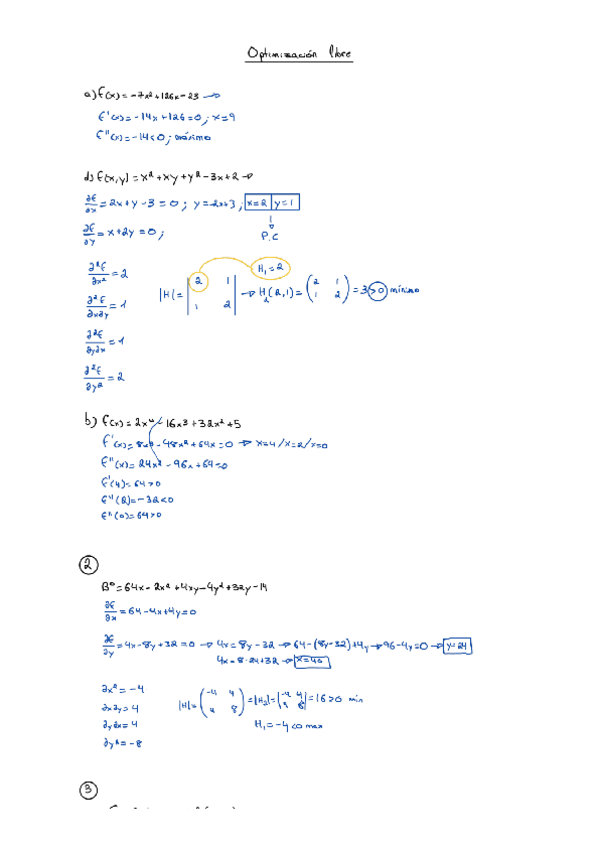 Optimización libre
a) f(x) = -7x² + 126x - 23 →
f'(x) = -14x + 126 = 0 ; x = 9
f''(x) = -14 < 0 ; máximo
d) f(x,y) = x² + xy + y² - 3x + 2 →
∂f/∂x = 2x + y - 3 = 0 ; y = 2x+3 ; x=2 y=1
∂f/∂y = x + 2y = 0 ;
P.C
∂²f/∂x² = 2
H₁ = 2
∂²f/∂x∂y = 1
|H| = | 2 1 1 2 | → H₂(2,1) = ( 2 1 1 2 ) = 3 > 0 mínimo
∂²f/∂y∂x = 1
∂²f/∂y² = 2
b) f(x) = 2x⁴ - 16x³ + 32x² + 5
f'(x) = 8x³ - 48x² + 64x = 0 → x=4 / x=2 / x=0
f''(x) = 24x² - 96x + 64 = 0
f'(4) = 64 > 0
f''(2) = -32 < 0
f''(0) = 64 > 0
2
Bº = 64x - 2x² + 4xy - 4y² + 32y - 14
∂f/∂x = 64 - 4x + 4y = 0
∂f/∂y = 4x - 8y + 32 = 0 → 4x = 8y - 32 → 64 - (8y-32) + 4y → 96 - 4y = 0 → y=24
4x = 8·24 + 32 → x=40
∂x² = -4
∂x∂y = 4
|H| = ( -4 4 4 8 ) = |H₂| = | -4 4 4 8 | = 16 > 0 min
∂y∂x = 4
H₁ = -4 < 0 max
∂y² = -8
3